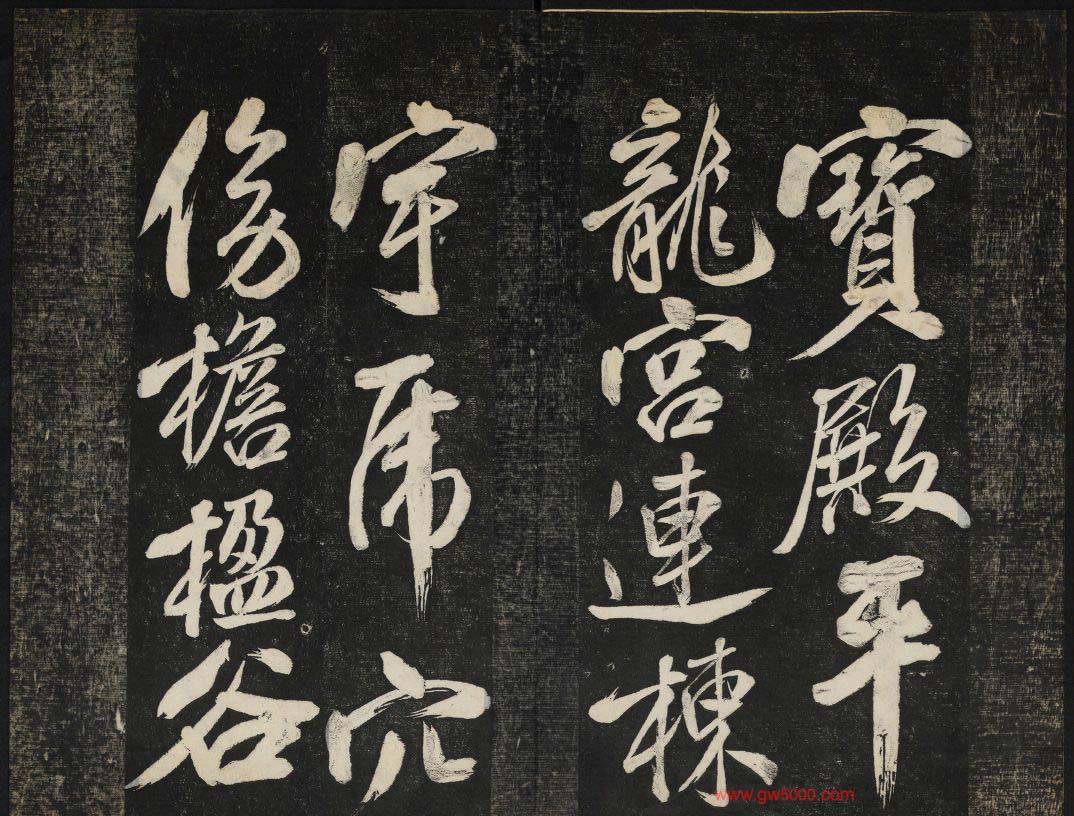 寶殿平
龍宮連棟
宇虎穴
傍檐楹谷
www.gw5000.com